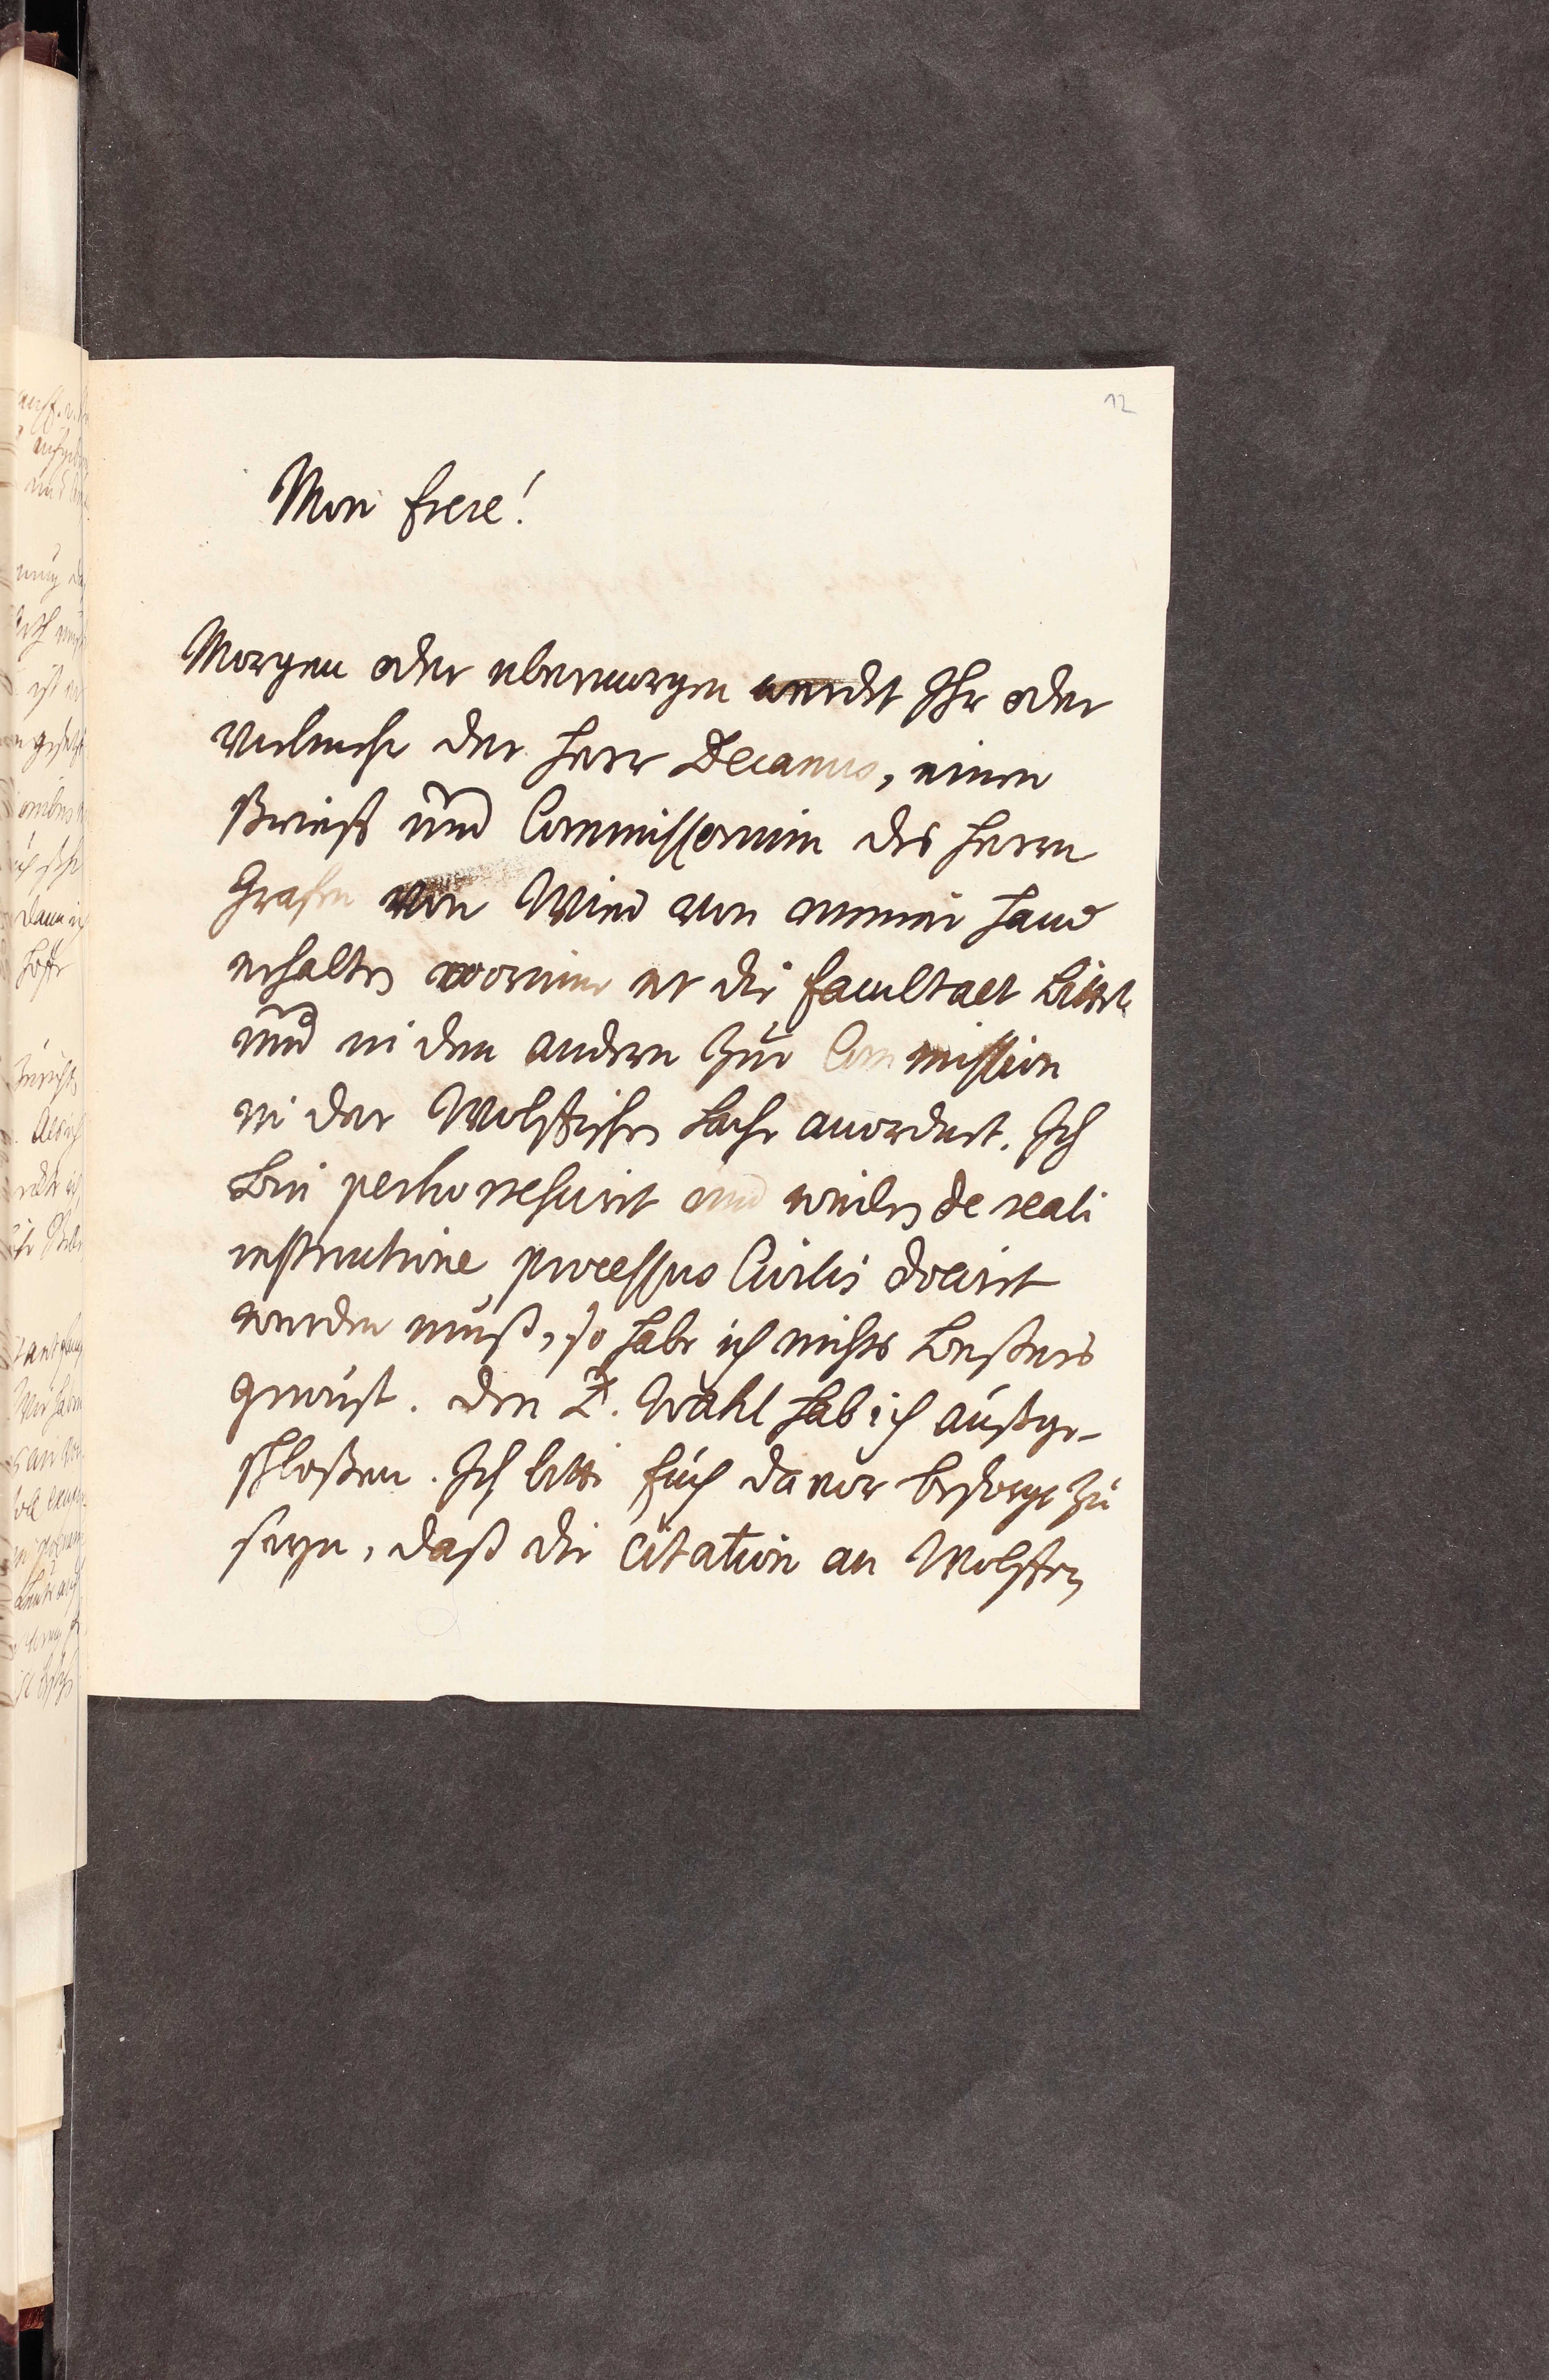 12
Mon frere!
Morgen oder ubermorgen werdet Ihr oder
vielmehr der Herr Decanus, einen
Brieff und Commissorium des Herrn
Grafen von Wied von meiner Hand
erhalten worinne er die Facultaet bittet
und in dem andern zur Commission
in der Wolffischen Sache anordnet. Ich
bin perhorrescirt und weilen de reali
instructione processus Civilis docirt
werden muß, so habe ich nichts beßeres
gewust. Den D. Wahl hab ich außge-
schloßen. Ich bitte Euch davor besorgt zu
seyn, daß die Citation an Wolffen